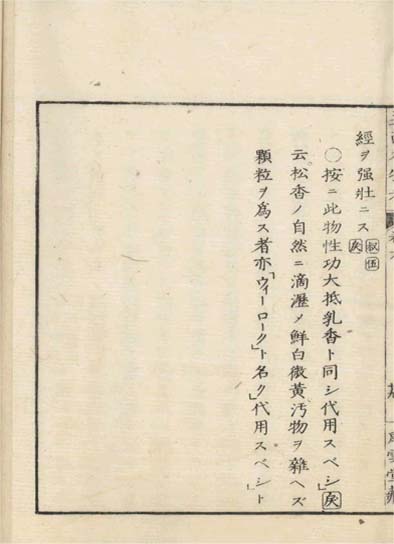 經ヲ强壯ニス 叔伍
灰
〇按ニ此物性功大抵乳香ト同シ代用スベシ」灰
云松香ノ自然ニ滴瀝メ鮮白微黄汚物ヲ雜ヘズ
顆粒ヲ爲ス者亦「ウィーローク」ト名ク」代用スベシト